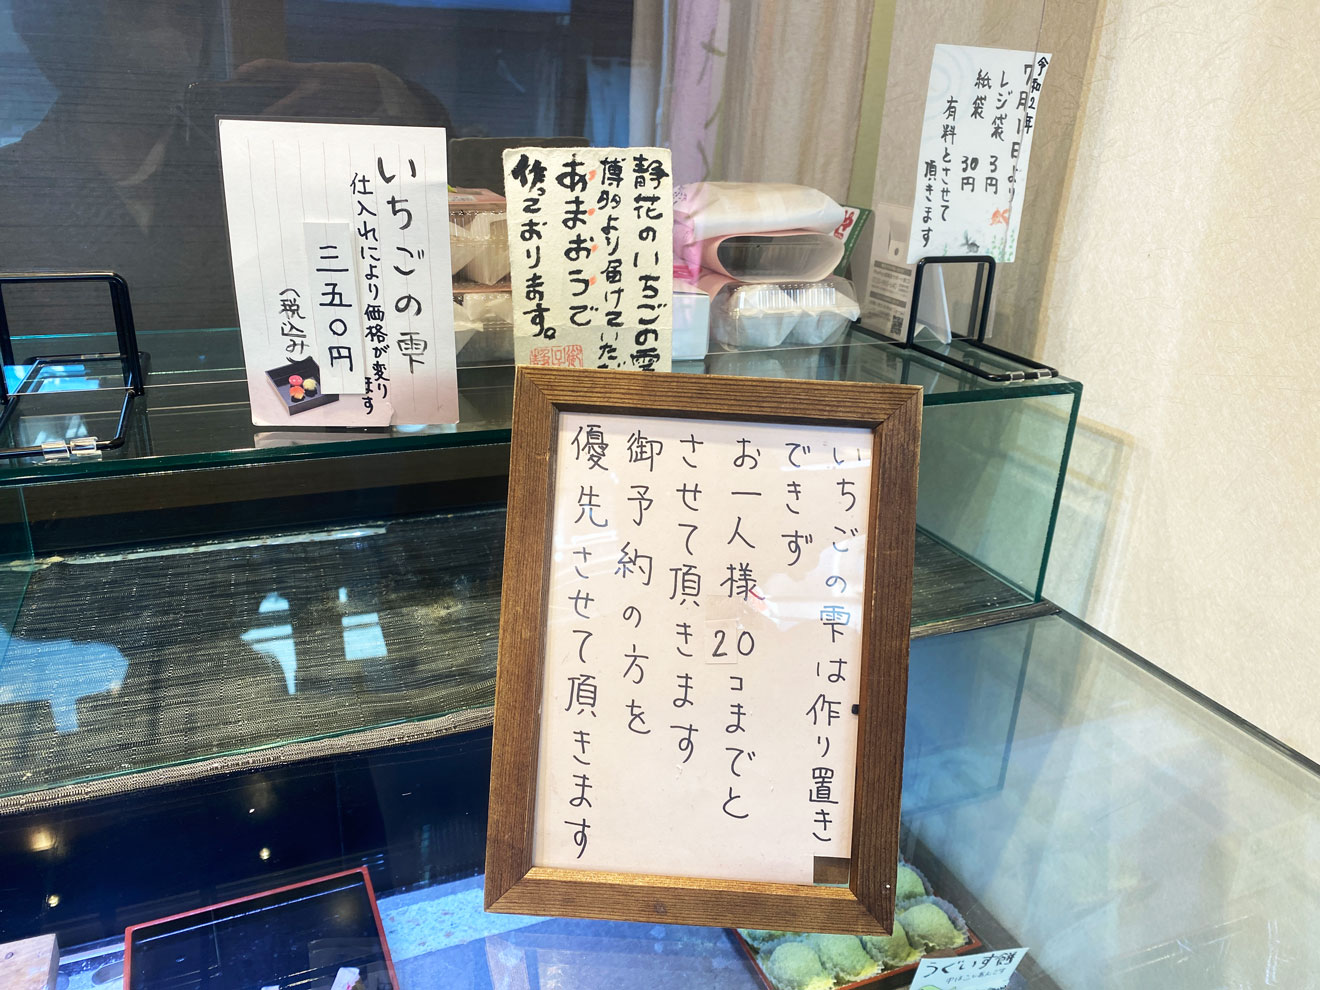 いちごの雫
仕入れにより価格が変り
ます
三五〇円
(税込み
静花のいちごの雫
博多より届けていただ
あまおうで
作っております。
令和2年
7月1日より
レジ袋 3円
紙袋 30円
有料とさせて
頂きます
いちごの雫は作り置き
できず
お一人様 20コまでと
させて頂きます
御予約の方を
優先させて頂きます
うぐいす餅